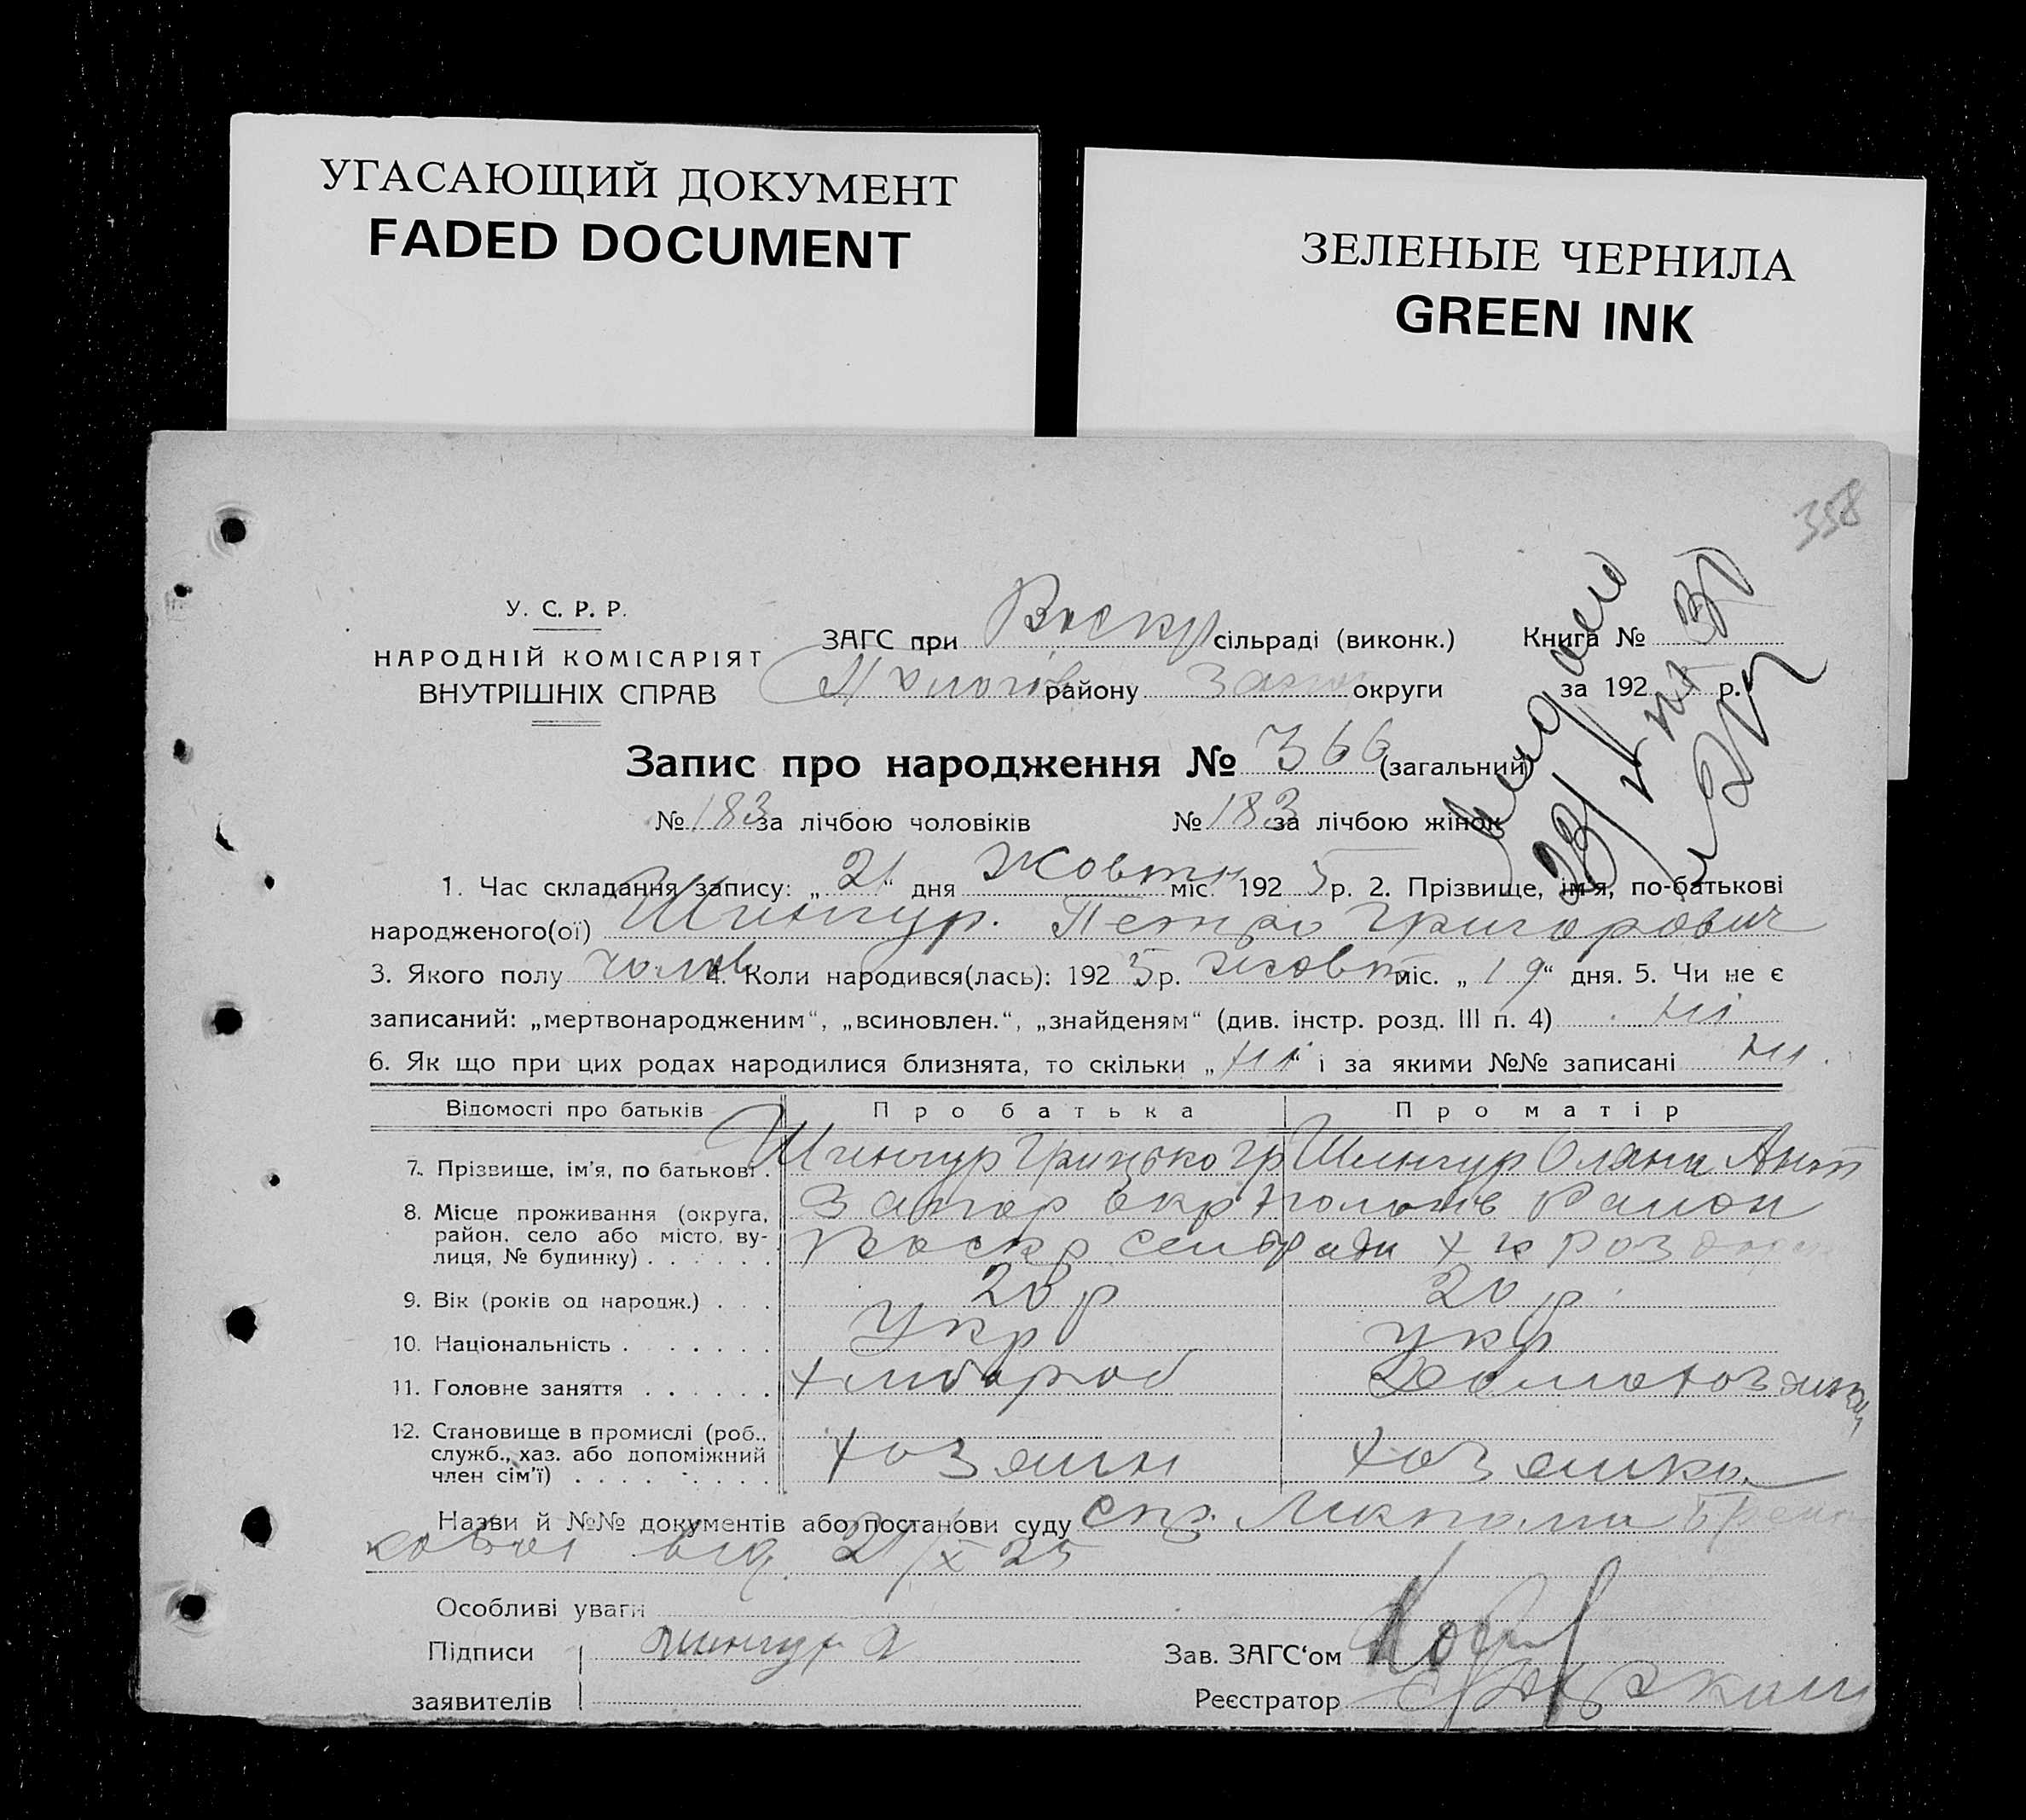 УГАСАЮЩИЙ ДОКУМЕНТ
FADED DOCUMENT
ЗЕЛЕНЫЕ ЧЕРНИЛА
GREEN INK
358
У. С. Р. Р.
НАРОДНІЙ КОМІСАРІЯТ
ВНУТРІШНІХ СПРАВ
ЗАГС при Воскр сільраді (виконк.) Книга №
району округи за 192 р.
Запис про народження № 366 (загальний)
№ 183 за лічбою чоловіків № 183 за лічбою жінок
1. Час складання запису: „21“ дня Жовтн міс. 192 5 р. 2. Прізвище, ім'я, по-батькові
народженого(ої) Шингур. Петро Григорович
3. Якого полу чолов 4. Коли народився(лась): 192 5 р. Жовтн міс. „19“ дня. 5. Чи не є
записаний: „мертвонародженим“, „всиновлен.“, „знайденям“ (див. інстр. розд. III п. 4) ні
6. Як що при цих родах народилися близнята, то скільки „ні“ і за якими №№ записані ні
Відомості про батьків Про батька Про матір
7. Прізвище, ім'я, по батькові . Шингур Грицько Гр Шингур Оляна Ант
8. Місце проживання (округа, район, село або місто, вулиця, № будинку) . . . . . . Запор окр район
Воскр
9. Вік (років од народж.) . . 20 р 20 р.
10. Національність . . . . . . . Укр укр
11. Головне заняття . . . . . . хлибороб
12. Становище в промислі (роб., служб., хаз. або допоміжний член сім'ї) . . . . . . . . хозяин хозяйка
Назви й №№ документів або постанови суду спр.
від. 21/X 25
Особливі уваги
Підписи Шингур
заявителів
Зав. ЗАГС‘ом
Реєстратор